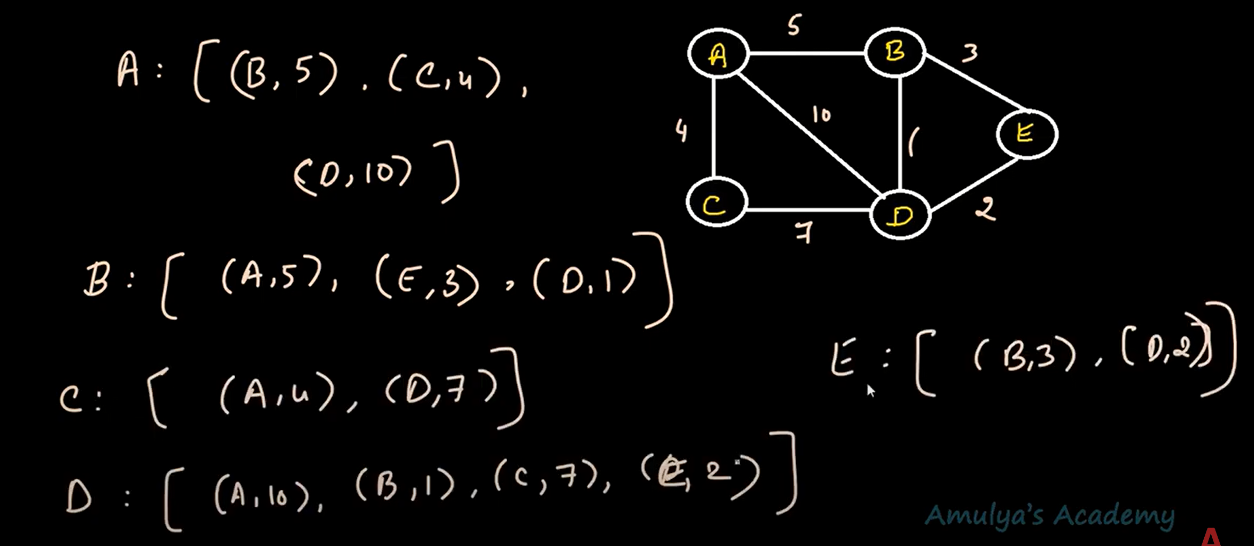 A : [ (B, 5) . (C, 4) ,
(D, 10) ]
B : [ (A, 5), (E, 3) , (D, 1) ]
C : [ (A, 4), (D, 7) ]
D : [ (A, 10), (B, 1), (C, 7), (E, 2) ]
A
5
B
3
4
10
1
E
C
7
D
2
E : [ (B, 3) , (D, 2) ]
Amulya's Academy
A